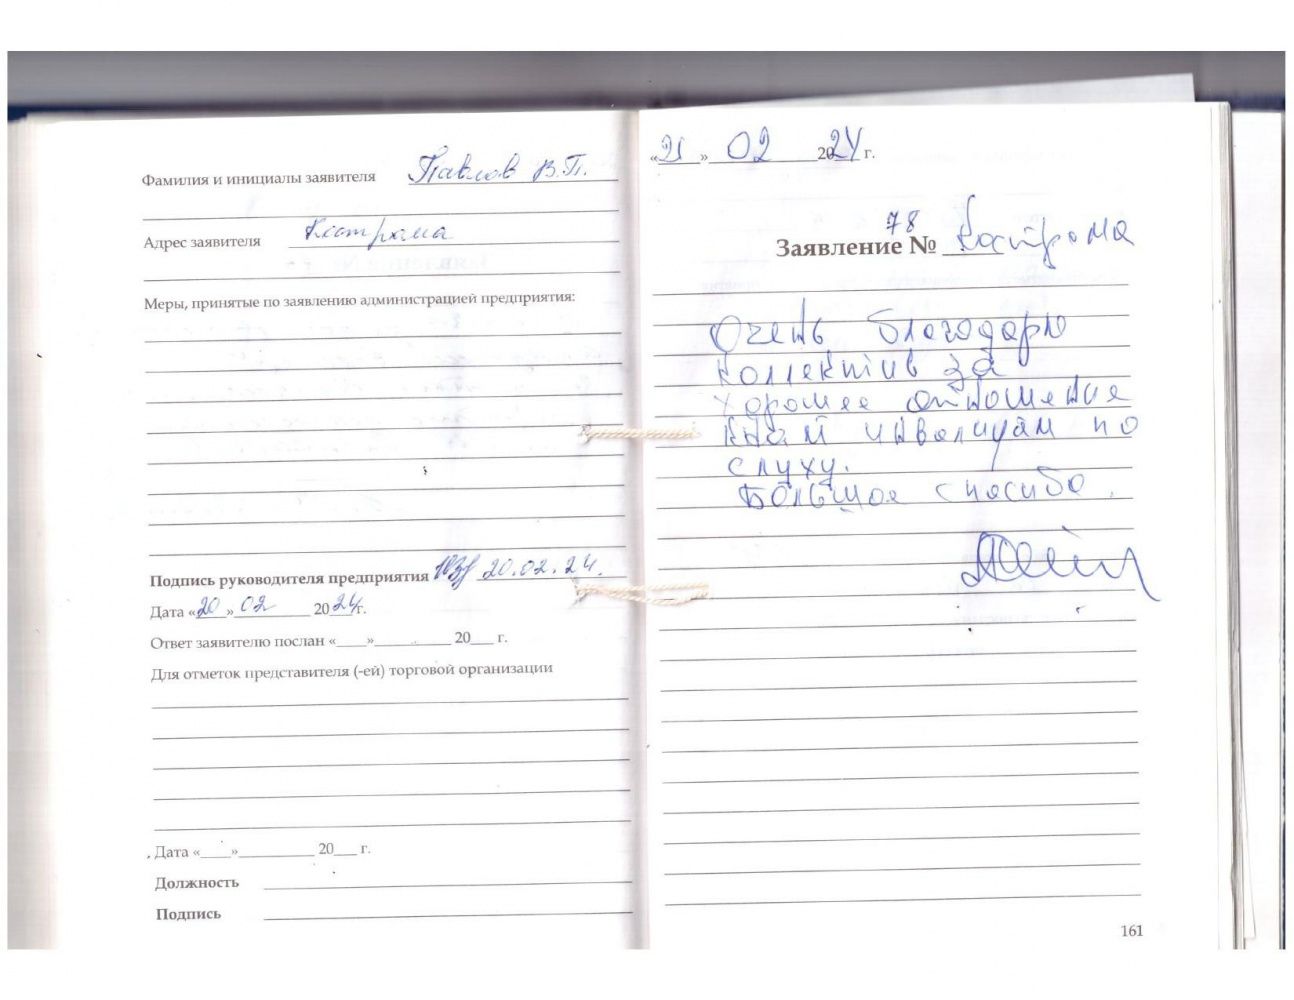 Фамилия и инициалы заявителя Павлов В.П.
Адрес заявителя Кострома
Меры, принятые по заявлению администрацией предприятия:
Подпись руководителя предприятия 20.02.24.
Дата «20» 02 2024 г.
Ответ заявителю послан «____»__________ 20___ г.
Для отметок представителя (-ей) торговой организации
Дата «____»__________ 20___ г.
Должность
Подпись
«21» 02 2024 г.
Заявление № 78 Кострома
Очень благодарю
коллектив за
хорошее отношение
к инвалидам по
слуху.
Большое спасибо.
161